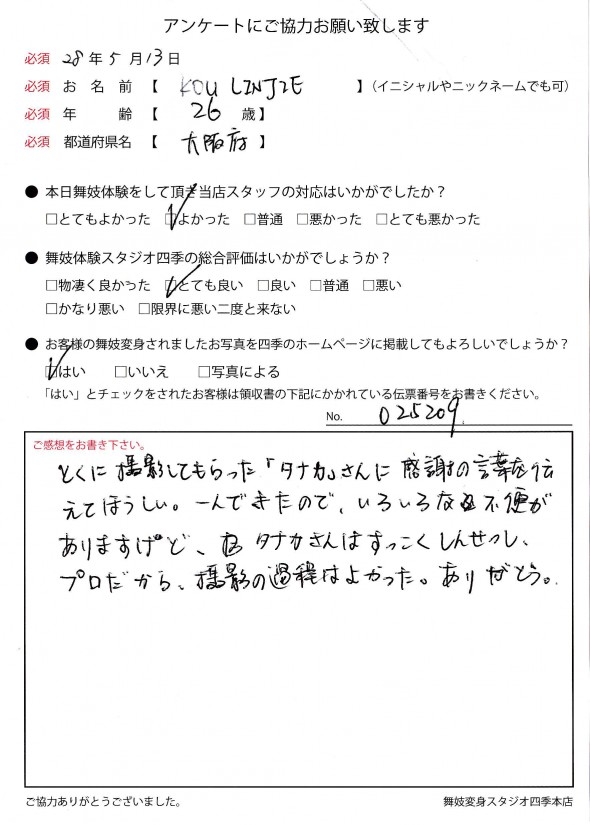 アンケートにご協力お願い致します
必須 28年5月13日
必須 お名前【 KOU LINJIE 】(イニシャルやニックネームでも可)
必須 年齢【 26 歳】
必須 都道府県名【 大阪府 】
● 本日舞妓体験をして頂き当店スタッフの対応はいかがでしたか?
□とてもよかった □よかった □普通 □悪かった □とても悪かった
● 舞妓体験スタジオ四季の総合評価はいかがでしょうか?
□物凄く良かった □とても良い □良い □普通 □悪い
□かなり悪い □限界に悪い二度と来ない
● お客様の舞妓変身されましたお写真を四季のホームページに掲載してもよろしいでしょうか?
□はい □いいえ □写真による
「はい」とチェックをされたお客様は領収書の下記にかかれている伝票番号をお書きください。
No. 025209
ご感想をお書き下さい。
とくに撮影してもらった「タナカ」さんに感謝の言葉を伝
えてほうしい。一人できたので、いろいろな不便が
ありますけど、タナカさんはすっこくしんせつし、
プロだから、撮影の過程はよかった。ありがとう。
ご協力ありがとうございました。
舞妓変身スタジオ四季本店